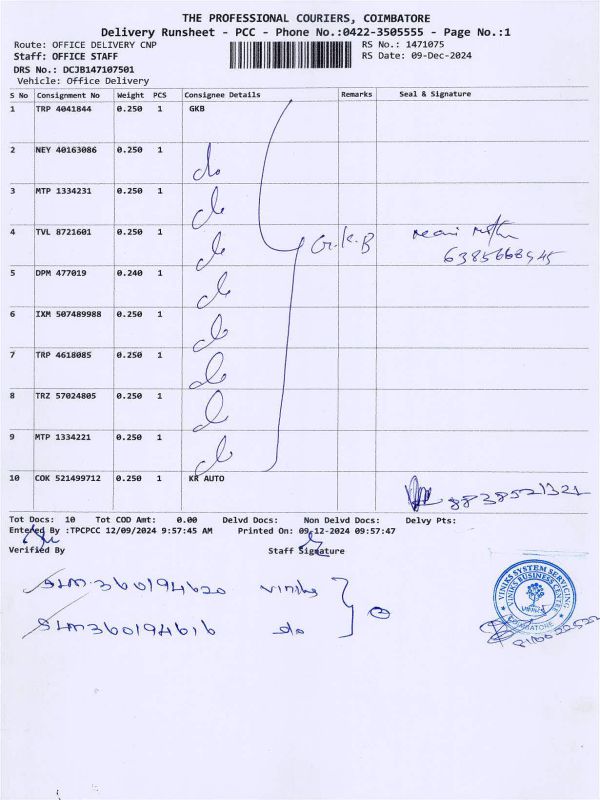 THE PROFESSIONAL COURIERS, COIMBATORE
Delivery Runsheet - PCC - Phone No.:0422-3505555 - Page No.:1
Route: OFFICE DELIVERY CNP RS No.: 1471075
Staff: OFFICE STAFF RS Date: 09-Dec-2024
DRS No.: DCJB147107501
Vehicle: Office Delivery
S No Consignment No Weight PCS Consignee Details Remarks Seal & Signature
1 TRP 4041844 0.250 1 GKB
2 NEY 40163086 0.250 1 do
3 MTP 1334231 0.250 1 do
4 TVL 8721601 0.250 1 do G.K.B
6385668945
5 DPM 477019 0.240 1 do
6 IXM 507489988 0.250 1 do
7 TRP 4618085 0.250 1 do
8 TRZ 57024805 0.250 1 do
9 MTP 1334221 0.250 1 do
10 COK 521499712 0.250 1 KR AUTO
8838521321
Tot Docs: 10 Tot COD Amt: 0.00 Delvd Docs: Non Delvd Docs: Delvy Pts:
Entered By :TPCPCC 12/09/2024 9:57:45 AM Printed On: 09-12-2024 09:57:47
Verified By Staff Signature
SLM 360194620 Viniks
SLM 360194616 do
2
VINIKS SYSTEM SERVICING
VINIKS BUSINESS CENTRE
VINIKS
COIMBATORE